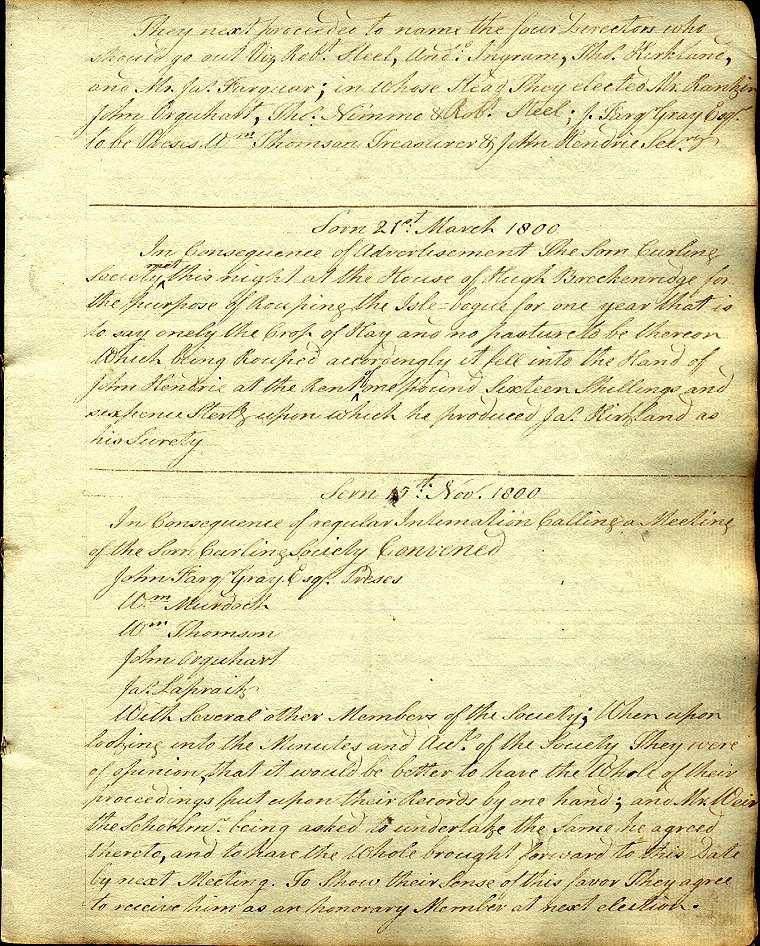 They next proceeded to name the four Directors who
should go out Viz. Robt. Steel, Andw. Ingram, Thos. Kirkland,
and Mr. Jas. Farquar; in whose Stead They elected Mr. Rankin
John Orquhart, Thos. Nimmo & Robt. Steel; J. Farqr Gray Esqr.
to be Preses Wm Thomson Treasurer & John Hendrie Secry
Sorn 21st. March 1800
In Consequence of Advertisement The Sorn Curling
Society met this night at the House of Hugh Breckenridge for
the purpose of Rouping the Isle-bogue for one year that is
to say onely the Crop of Hay and no pasture to be thereon
Which being Rouped accordingly it fell into the Hand of
John Hendrie at the Rent of one pound Sixteen Shillings and
sixpence Sterlg upon which he produced Jas. Kirkland as
his Surety
Sorn 17th. Nov. 1800
In Consequence of regular Intimation Calling a Meeting
of the Sorn Curling Society Convened
John Farqr Gray Esqr. Preses
Wm Murdoch
Wm Thomson
John Orquhart
Jas. Lapraik
With Several other Members of the Society; When upon
looking into the Minutes and of the Society They were
of opinion, that it would be better to have the Whole of their
proceedings put upon their Records by one hand; and Mr. Weir
the Schoolmr. being asked to undertake the Same he agreed
thereto, and to have the Whole brought forward to this Date
by next Meeting. To Show their Sense of this favor They agree
to receive him as an honorary Member at next election.